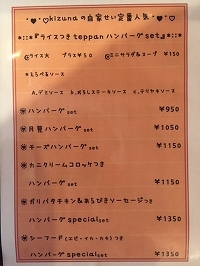 ・♥・♥kizunaの自家せい定番人気・♥・♥・
*::*『ライスつきteppanハンバーグset』*::*
◎ライス大 プラス¥50 ◎ミニサラダ&スープ ¥150
*えらべるソース
A.デミソース b.おろしステーキソース c.テリヤキソース
❀ハンバーグset ¥950
❀月見ハンバーグset ¥1050
❀チーズハンバーグset ¥1150
❀カニクリームコロッケつき
ハンバーグset ¥1150
❀ガリバタチキン&あらびきソーセージつき
ハンバーグspecialset ¥1350
❀シーフード(エビ・イカ・カキ)つき
ハンバーグspecialset ¥1350